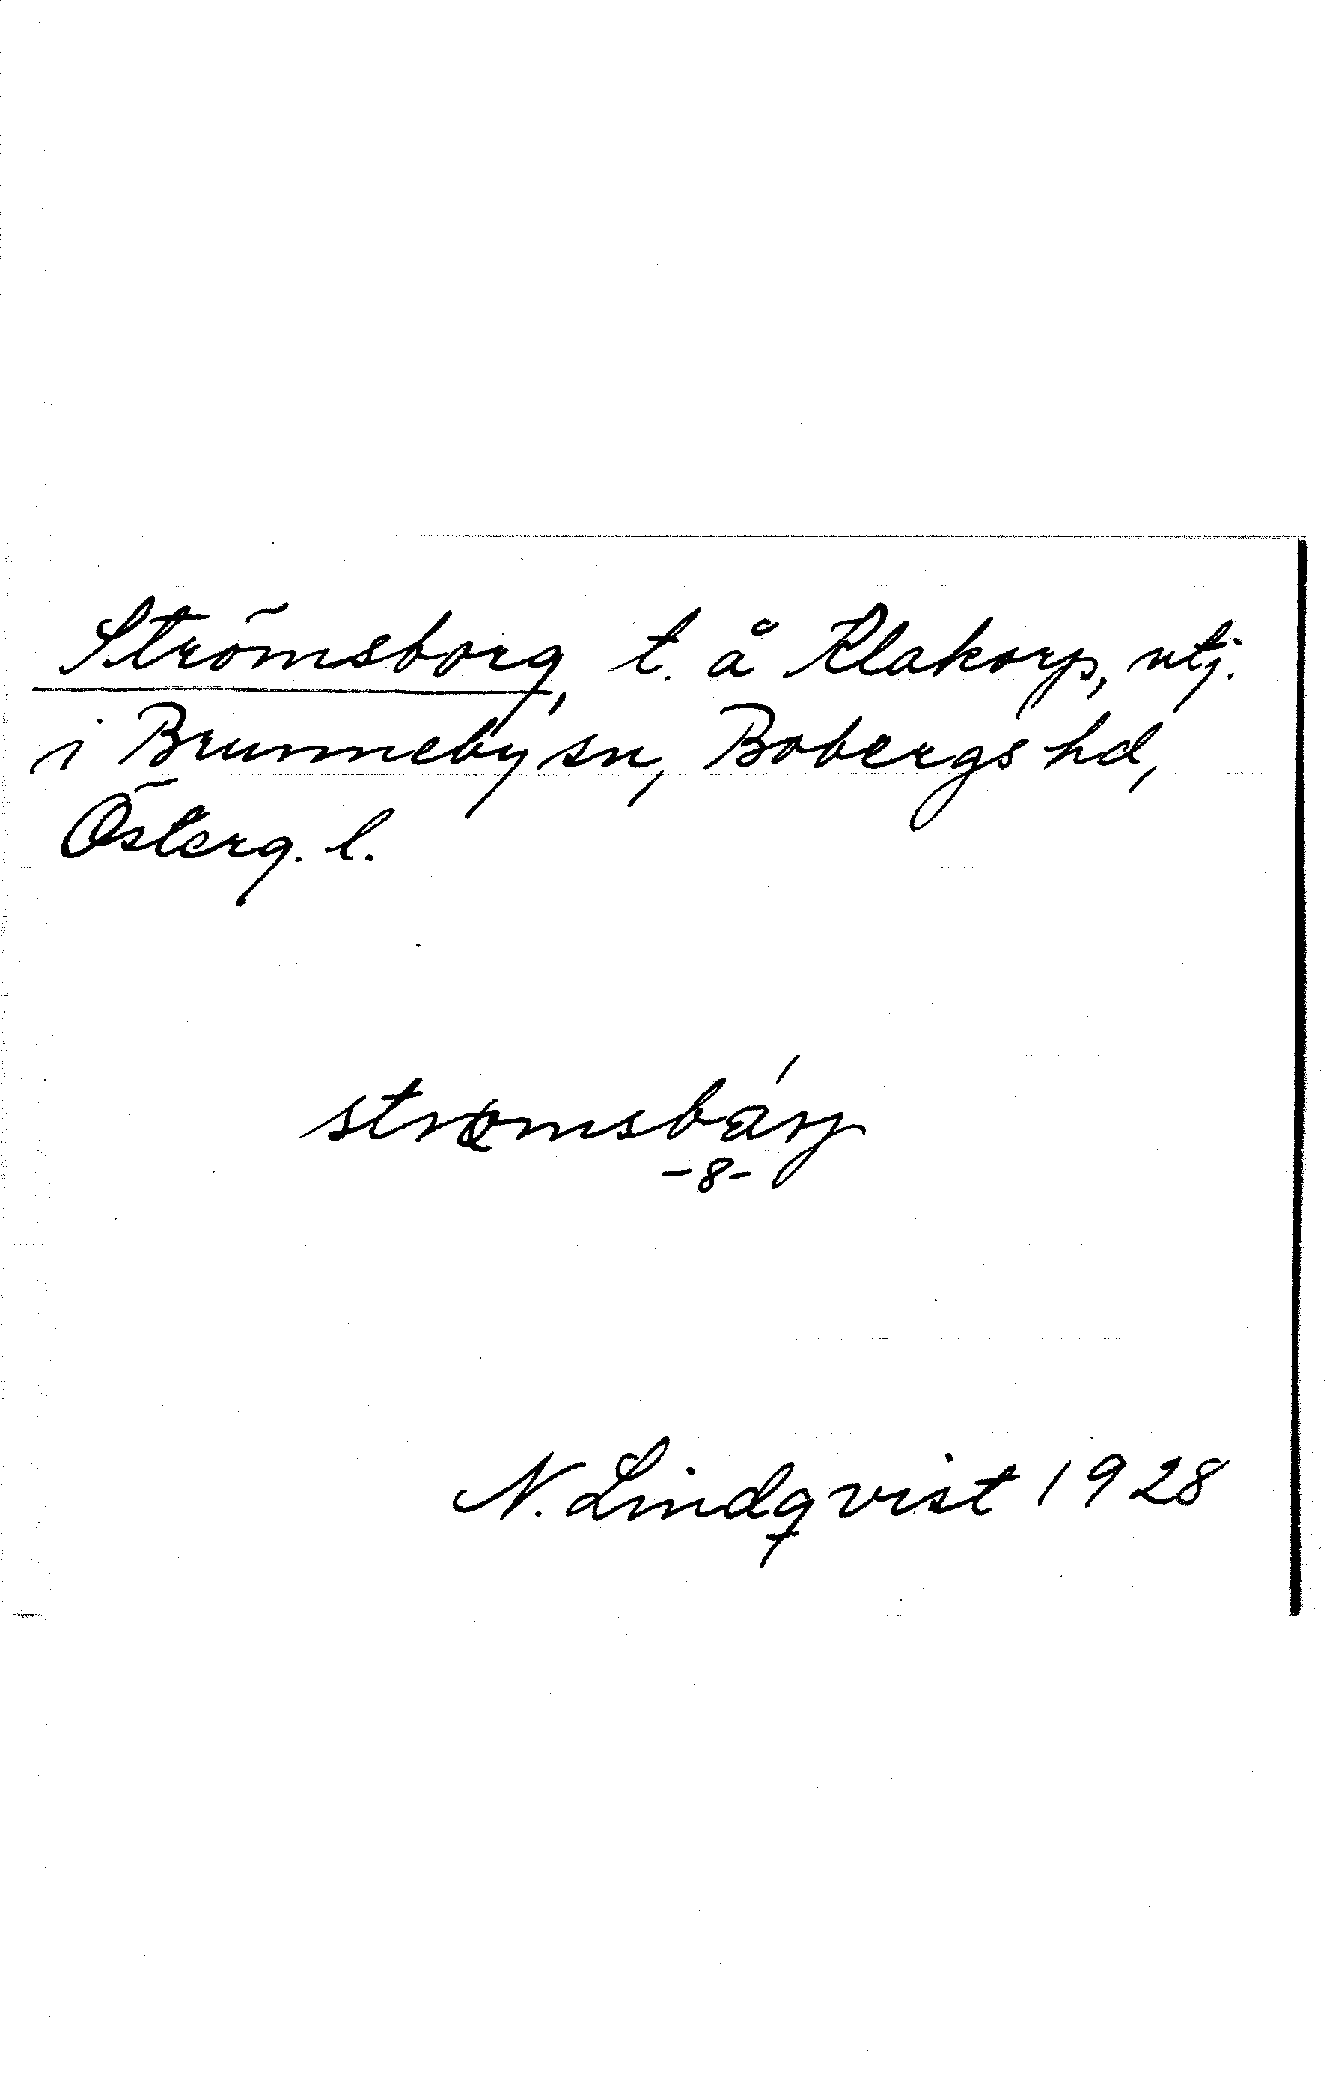 Strömsborg, t. å Klakorp, utj.
i Brunneby sn, Bobergs hd,
Österg. l.
-8-
N. Lindqvist 1928